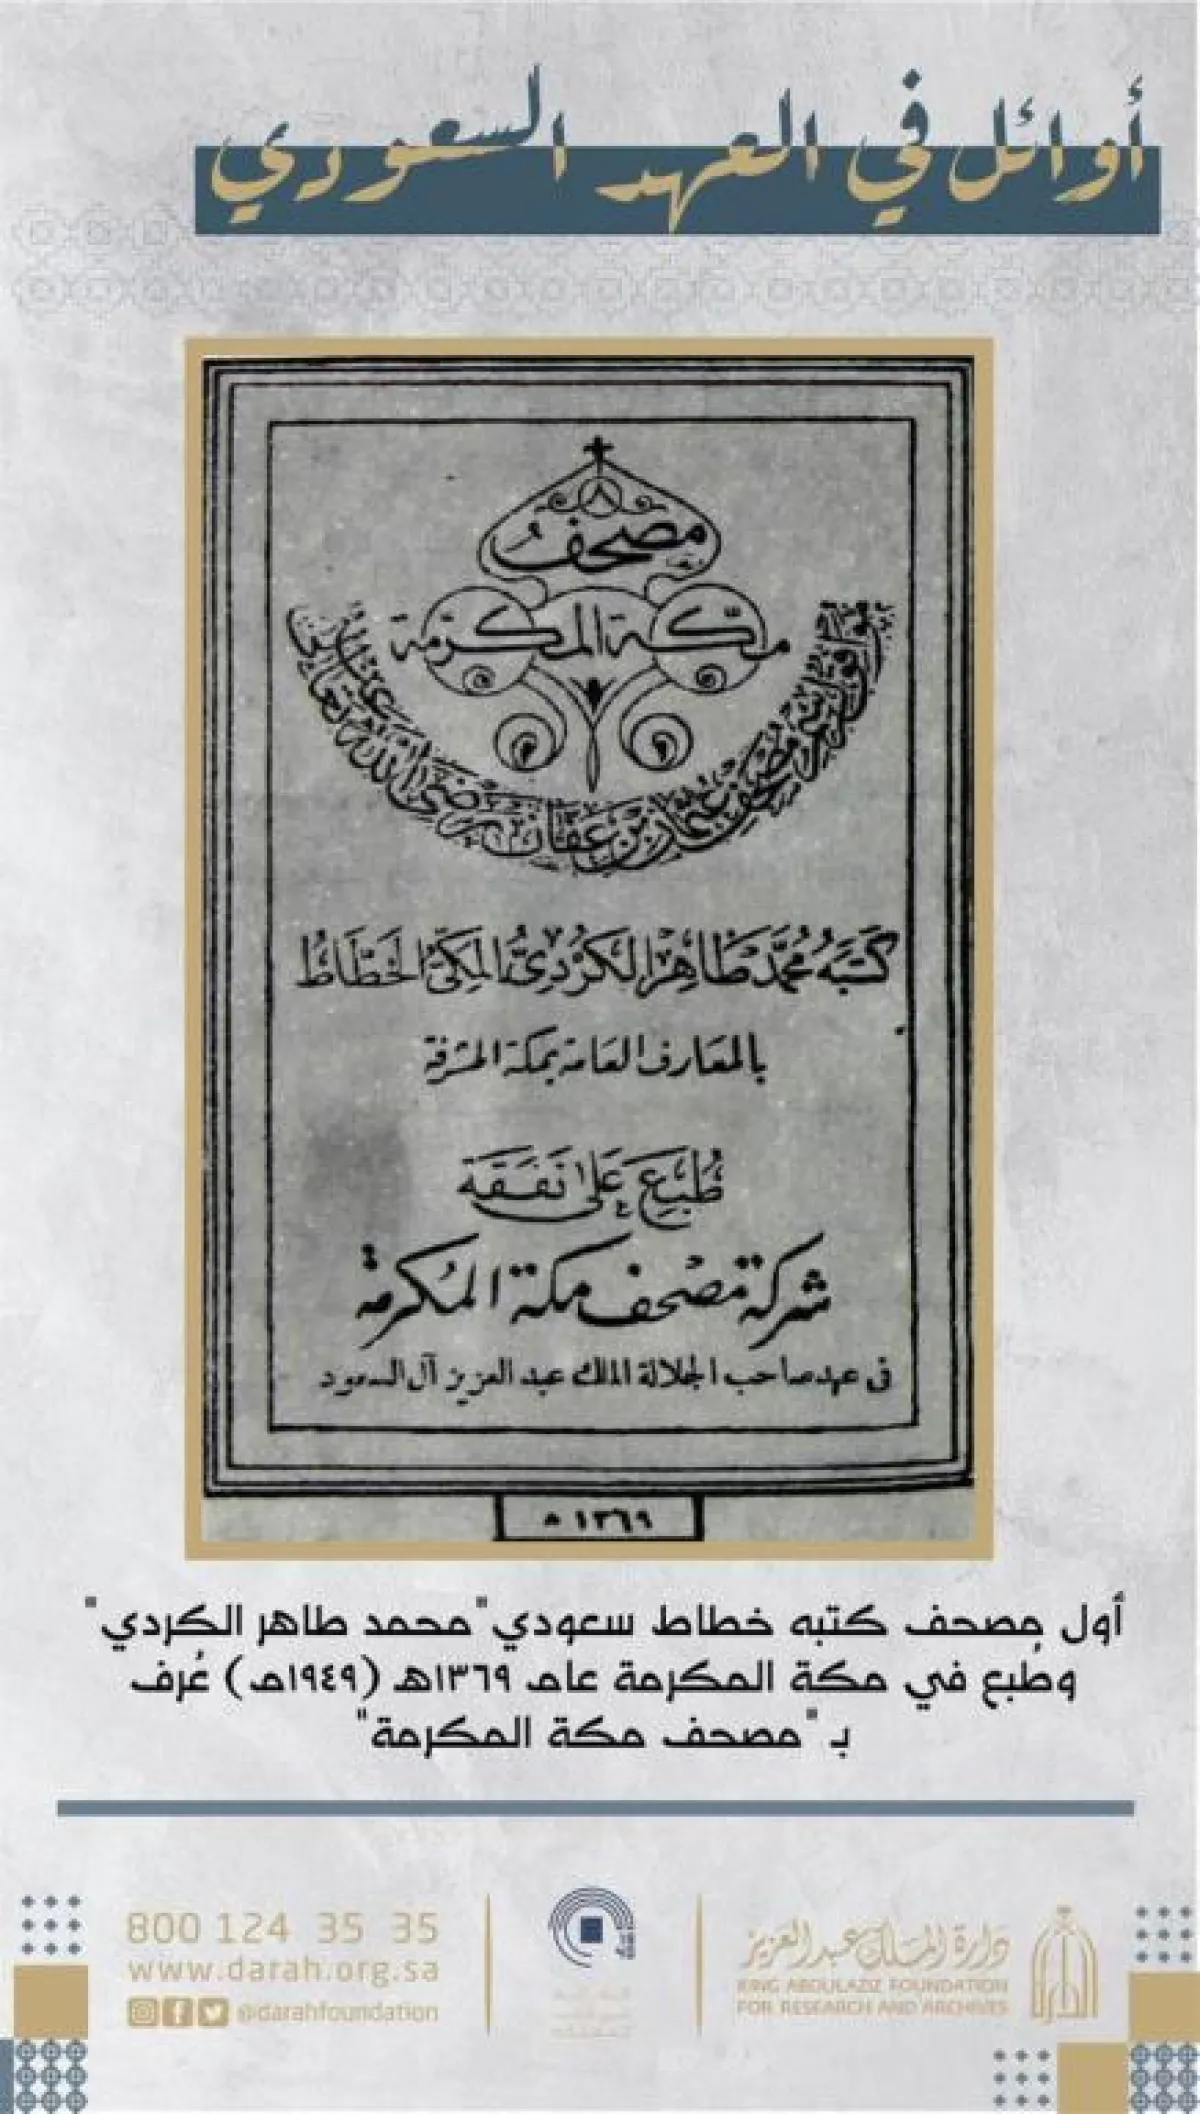 أوائل في العهد السعودي
مصحف
مكة المكرمة
موافق لرسم مصحف عثمان بن عفان رضي الله تعالى عنه
كَتَبَهُ مُحَمَّد طَاهِر الكُرْدِيُّ المَكِّيُّ الخَطَّاطُ
بالمعارف العامة بمكة المشرفة
طُبِعَ عَلَى نَفَقَة
شركة مصحف مكة المكرمة
فى عهد صاحب الجلالة الملك عبد العزيز آل السعود
١٣٦٩ هـ
أول مصحف كتبه خطاط سعودي "محمد طاهر الكردي"
وطُبع في مكة المكرمة عام ١٣٦٩هـ (١٩٤٩م) عُرف
بـ "مصحف مكة المكرمة"
دارة الملك عبد العزيز
KING ABDULAZIZ FOUNDATION
FOR RESEARCH AND ARCHIVES
800 124 35 35
www.darah.org.sa
@darahfoundation